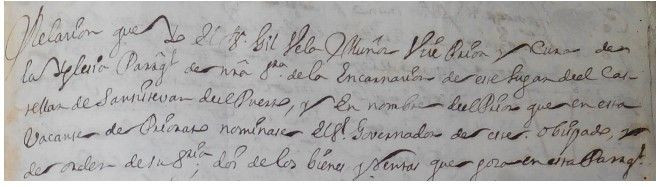 Relacion que Yo el Dr. Gil Vela Muñoz Vice Prior y Cura de
la Yglesia Parrql. de nrã Srã. de la Encarnacion de este lugar de el Cas-
tellar de Santistevan del Puerto, y En nombre del Prior que en esta
Vacante de Priorato nominase el Sr. Governador de este obispado, y
de orden de su Sria; doi de los bienes y Rentas que goza en esta Parrql.